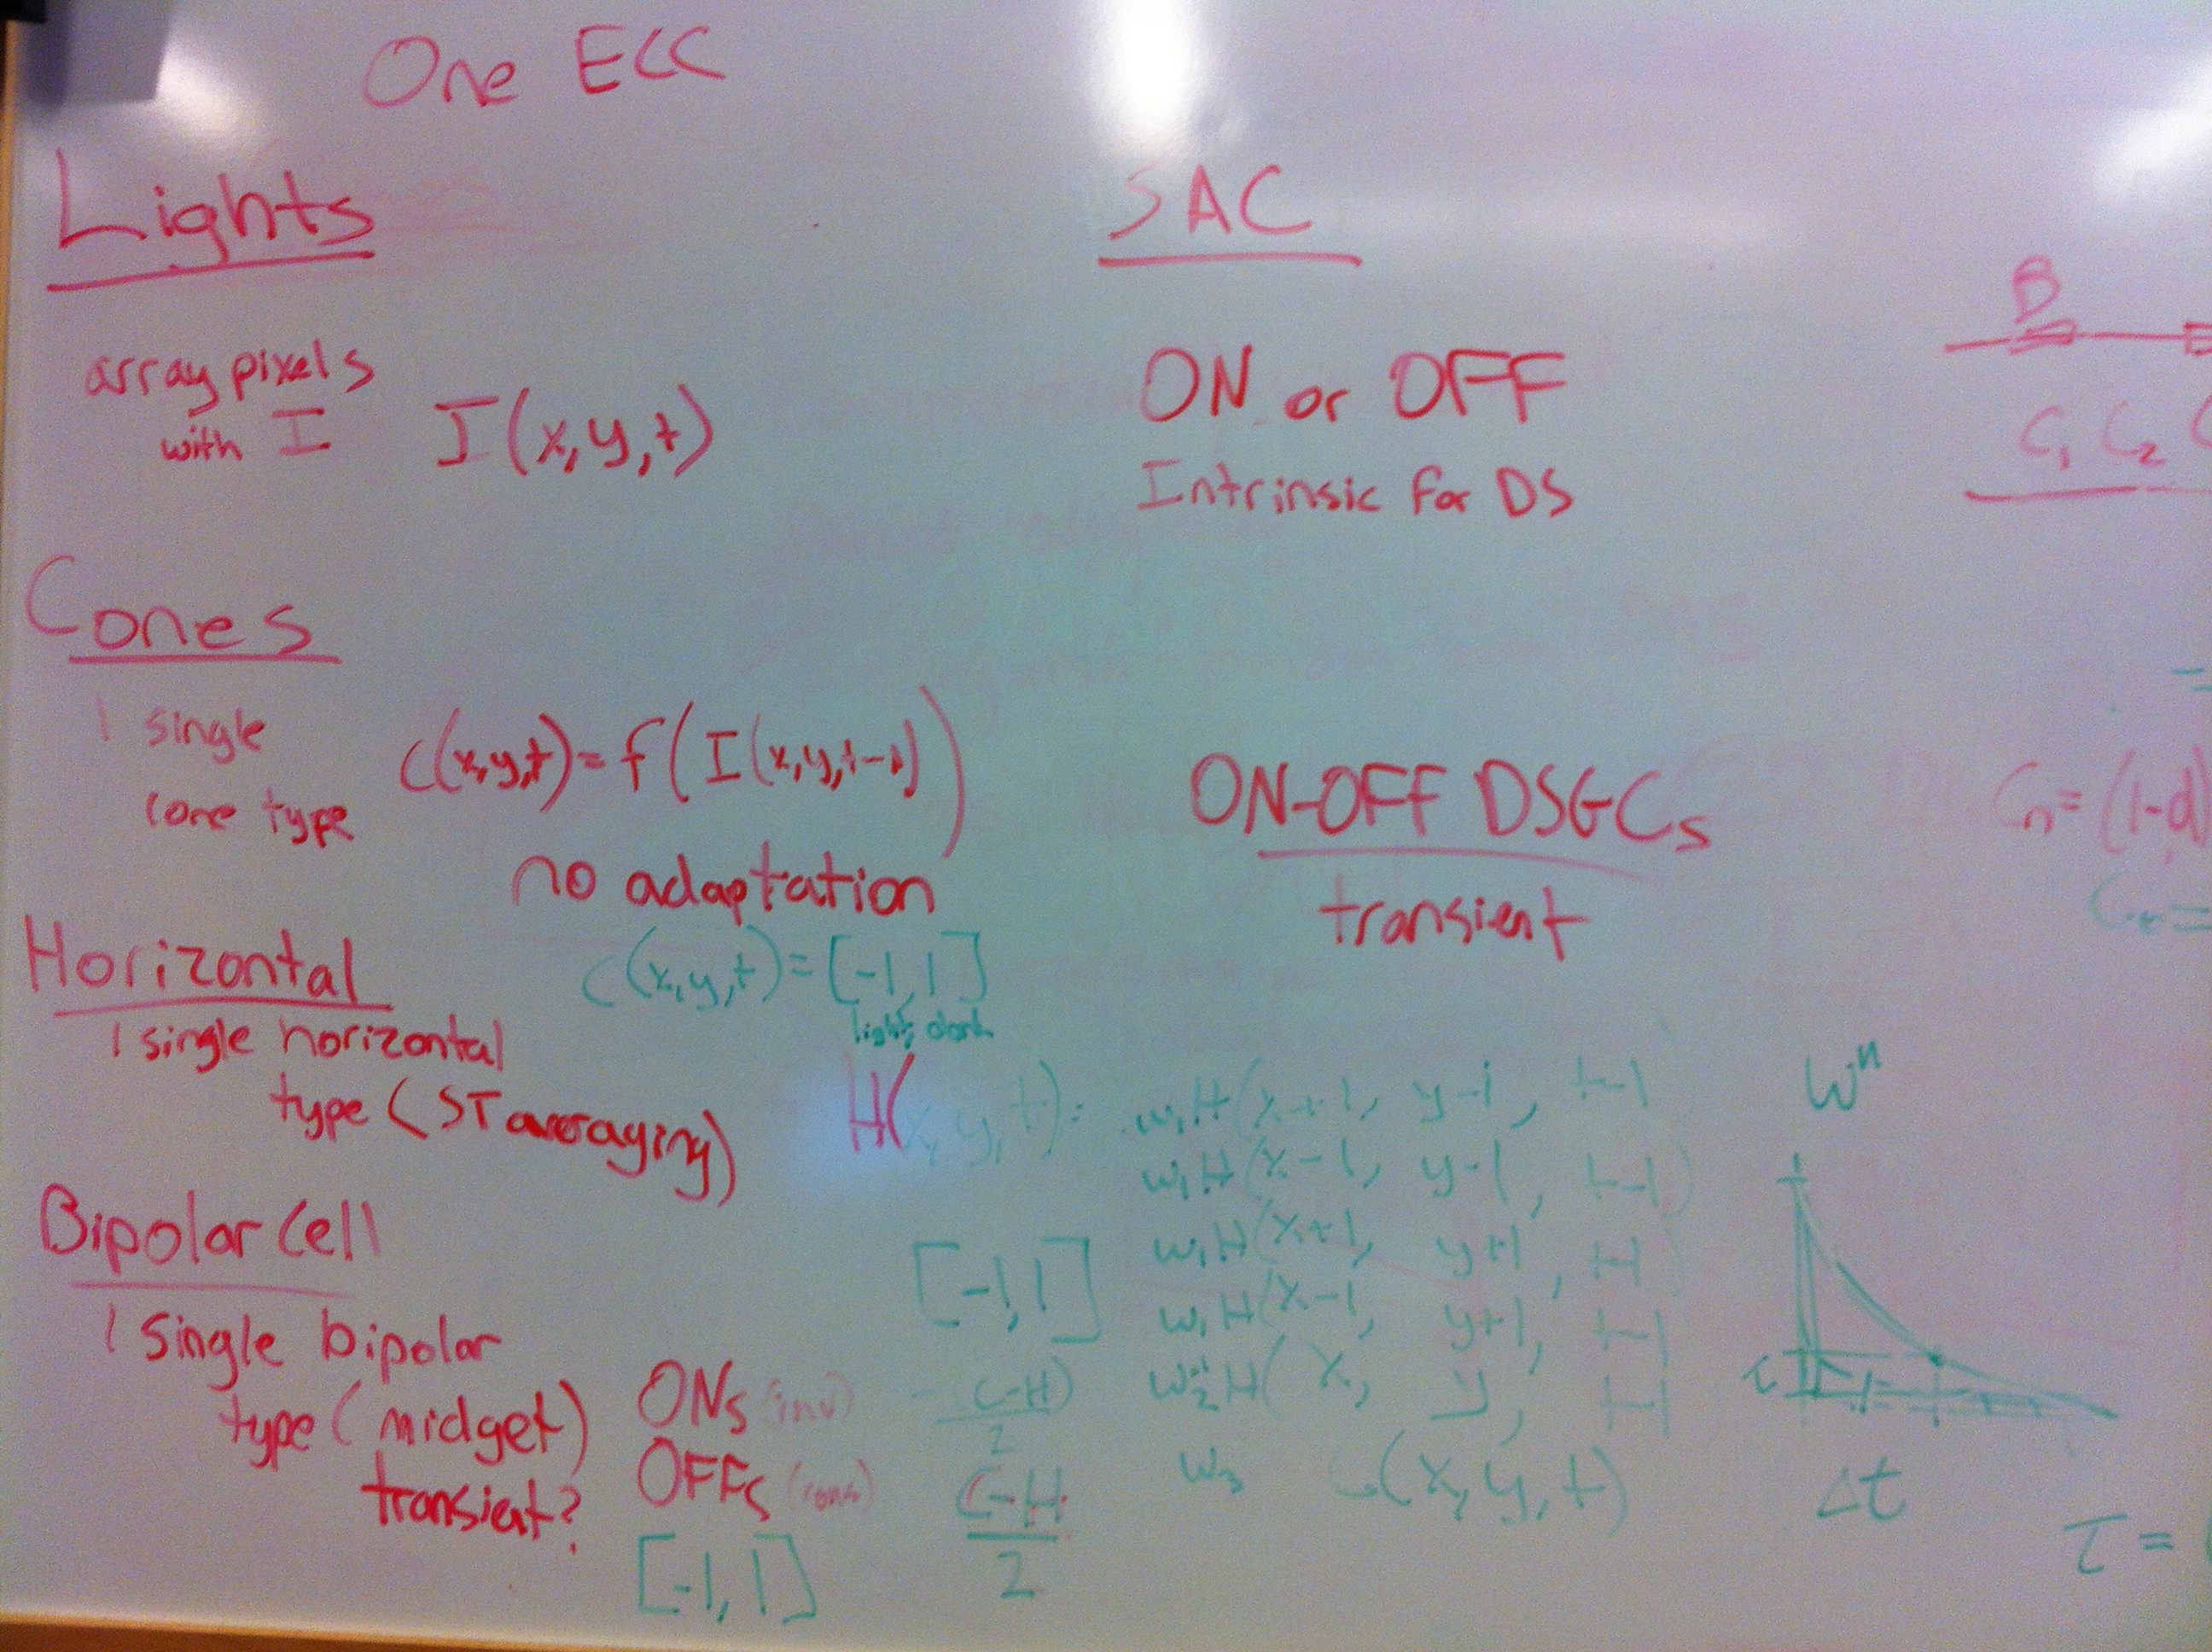 One ECC
Lights
array pixels
with I
I(x,y,t)
Cones
1 single
cone type
C(x,y,t)=f(I(x,y,t-1))
no adaptation
C(x,y,t)=[-1,1]
light, dark
Horizontal
1 single horizontal
type (ST averaging)
H(x,y,t)=
w₁H(x+1, y-1, t-1
w₁H(x-1, y-1, t-1)
w₁H(x+1, y+1, t-1
w₁H(x-1, y+1, t-1
H(x, y, t-1
w₃ C(x,y,t)
[-1,1]
Bipolar Cell
1 single bipolar
type (midget)
transient?
ONs (inv)
-(C-H)
2
OFFs (cons)
C-H
2
[-1,1]
SAC
ON or OFF
Intrinsic for DS
ON-OFF DSGCs
transient
B
C₁ C₂
Cₙ=(1-d)
wⁿ
τ
Δt
τ=